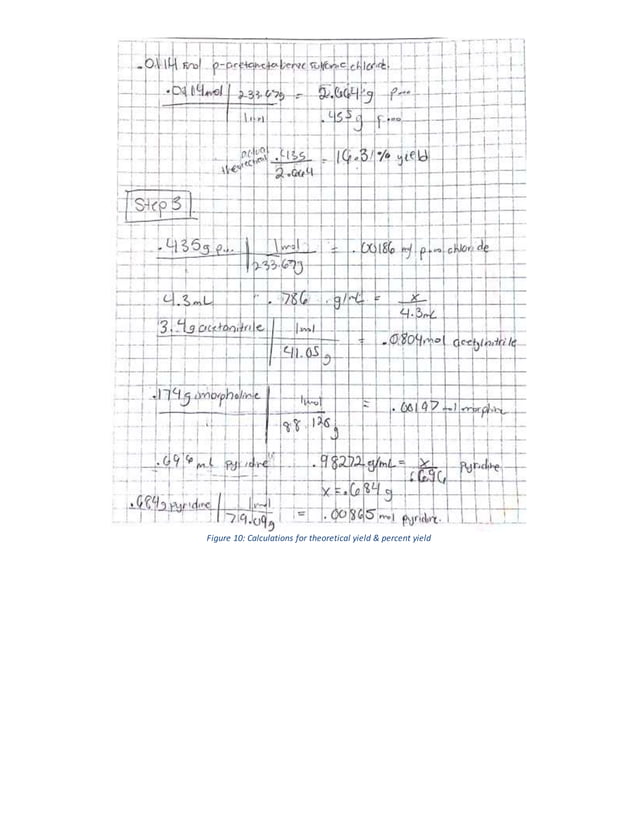 .0114 mol p-acetamidobenzenesulfonic chloride.
.0114mol | 233.67g = 2.664g p...
1mol .455g p...
actual theoretical .435 / 2.664 = 16.31% yield
Step 3
.435g p... | 1mol = .00186 mol p... chloride
233.67g
4.3mL .786 g/mL = x / 4.3mL
3.4g acetonitrile | 1mol = .0804mol acetylnitrile
41.05g
.174g morpholine | 1mol = .00197 mol
88.126g
.696 mL pyridine .98272 g/mL = x / .696 pyridine
x = .684g
.684g pyridine | 1mol = .00865 mol pyridine.
79.09g
Figure 10: Calculations for theoretical yield & percent yield